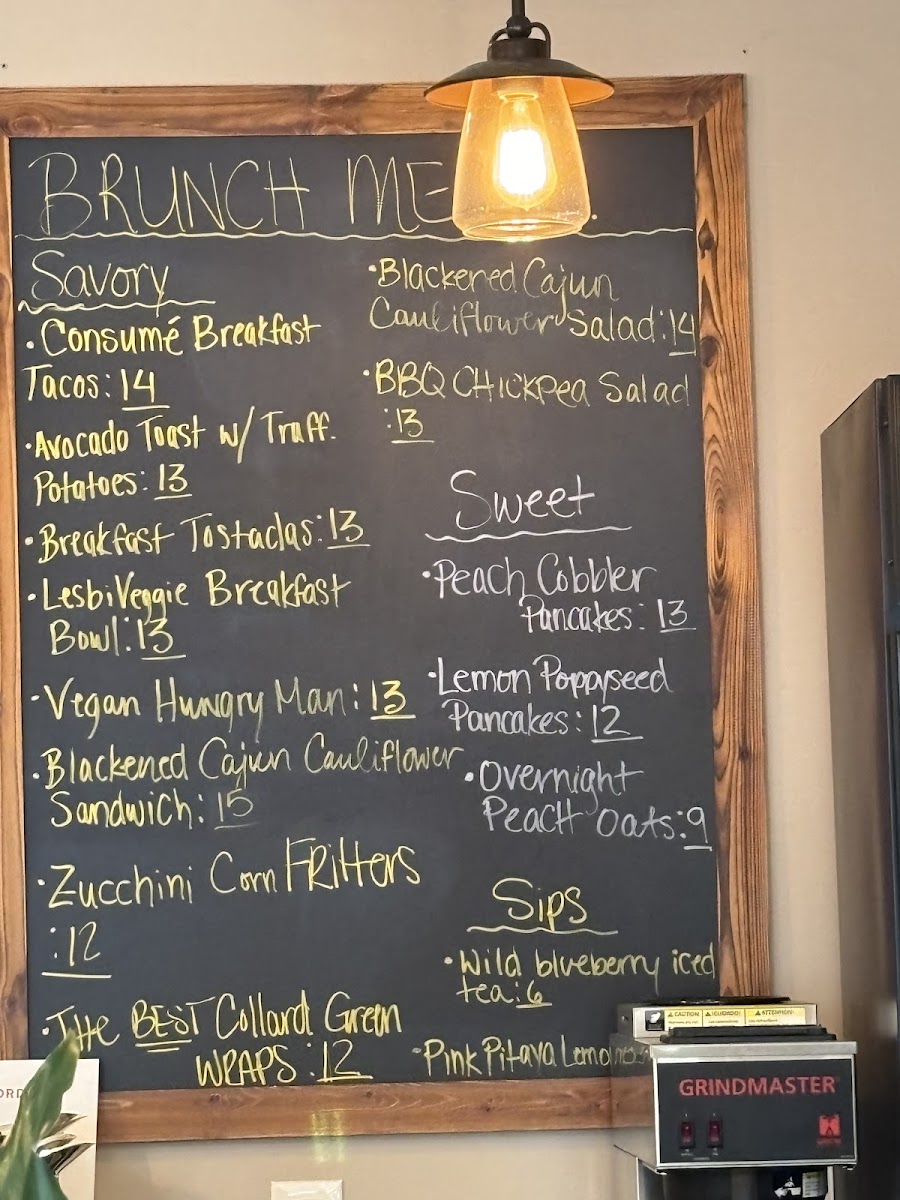 BRUNCH ME
Savory
• Consumé Breakfast
Tacos: 14
• Avocado Toast w/ Truff.
Potatoes: 13
• Breakfast Tostadas: 13
• LesbiVeggie Breakfast
Bowl: 13
• Vegan Hungry Man: 13
• Blackened Cajun Cauliflower
Sandwich: 15
• Zucchini Corn FRitters
: 12
• THe BEST Collard Green
WRAPS: 12
• Blackened Cajun
Cauliflower Salad: 14
• BBQ CHickpea Salad
: 13
Sweet
• Peach Cobbler
Pancakes: 13
• Lemon Poppyseed
Pancakes: 12
• Overnight
PEACH Oats: 9
Sips
• Wild blueberry iced
tea: 6
• Pink Pitaya Lemon
CAUTION ¡CUIDADO! ATTENTION
GRINDMASTER